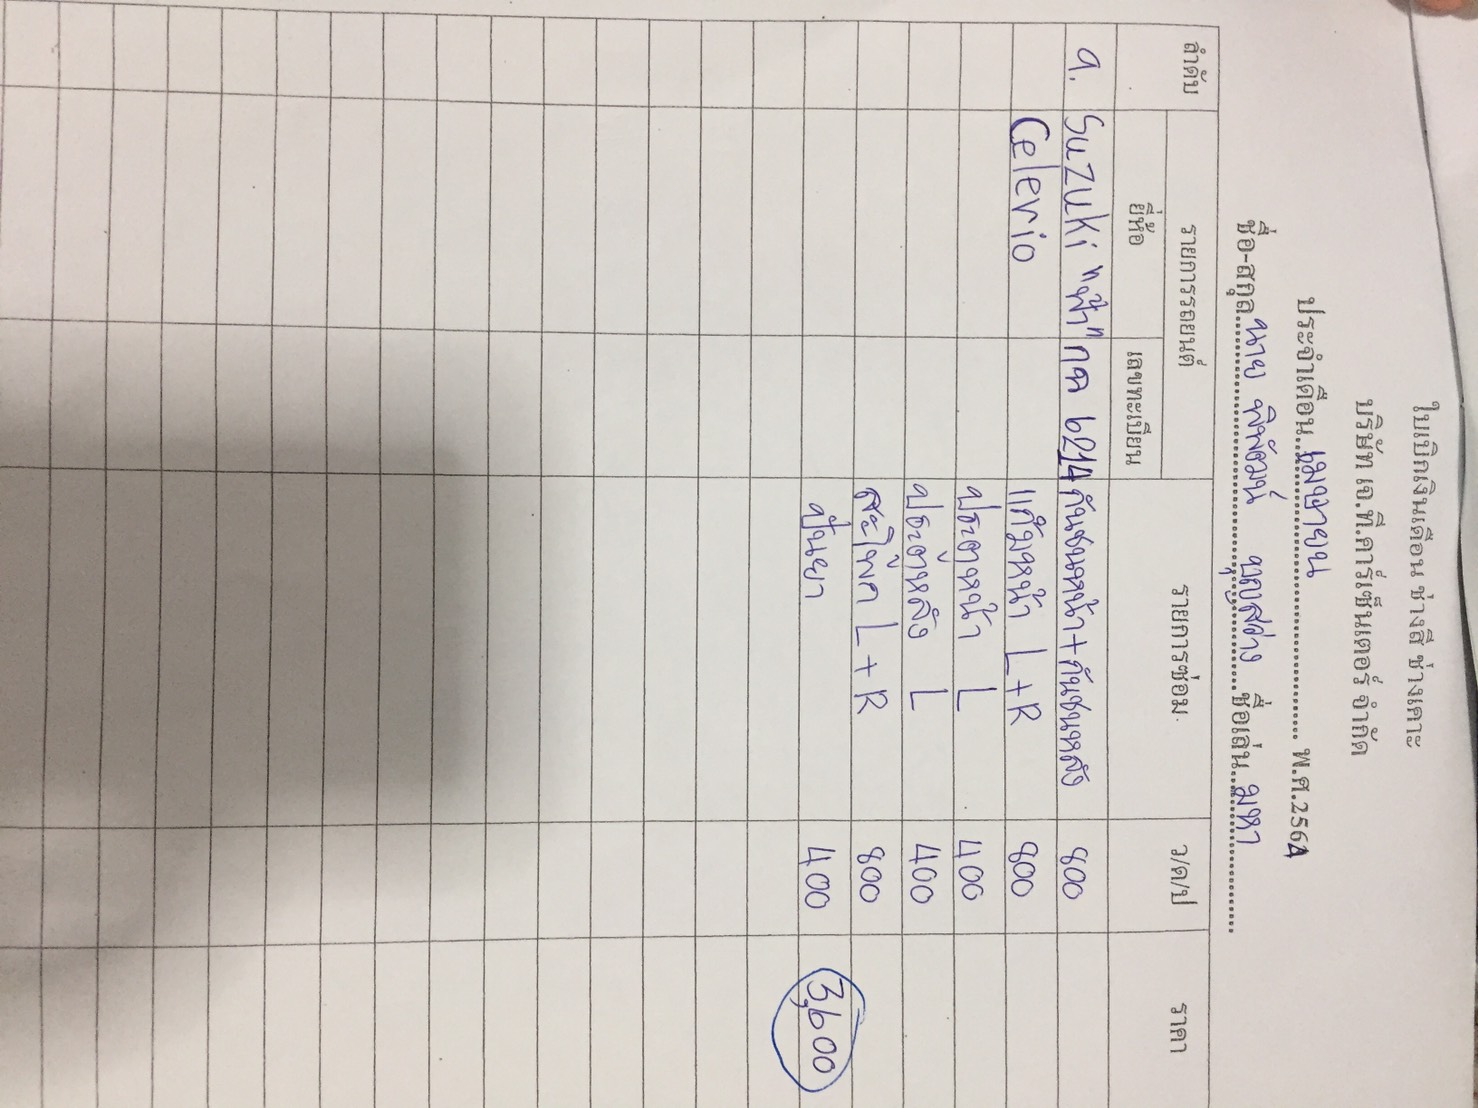 ใบเบิกเงินเดือน ช่างสี ช่างเคาะ
บริษัท เจ.ที.คาร์เซ็นเตอร์ จำกัด
ประจำเดือน เมษายน พ.ศ.2564
ชื่อ-สกุล นาย พิพัฒน์ บุญสว่าง ชื่อเล่น มหา
ลำดับ รายการรถยนต์ รายการซ่อม ว/ด/ป ราคา
ยี่ห้อ เลขทะเบียน
9. Suzuki "ฟ้า" 6214 กันชนหน้า+กันชนหลัง 800
Celerio แก้มหน้า L+R 800
ประตูหน้า L 400
ประตูหลัง L 400
สะโพ้ก L+R 800
ปั้นยา 400 3,600